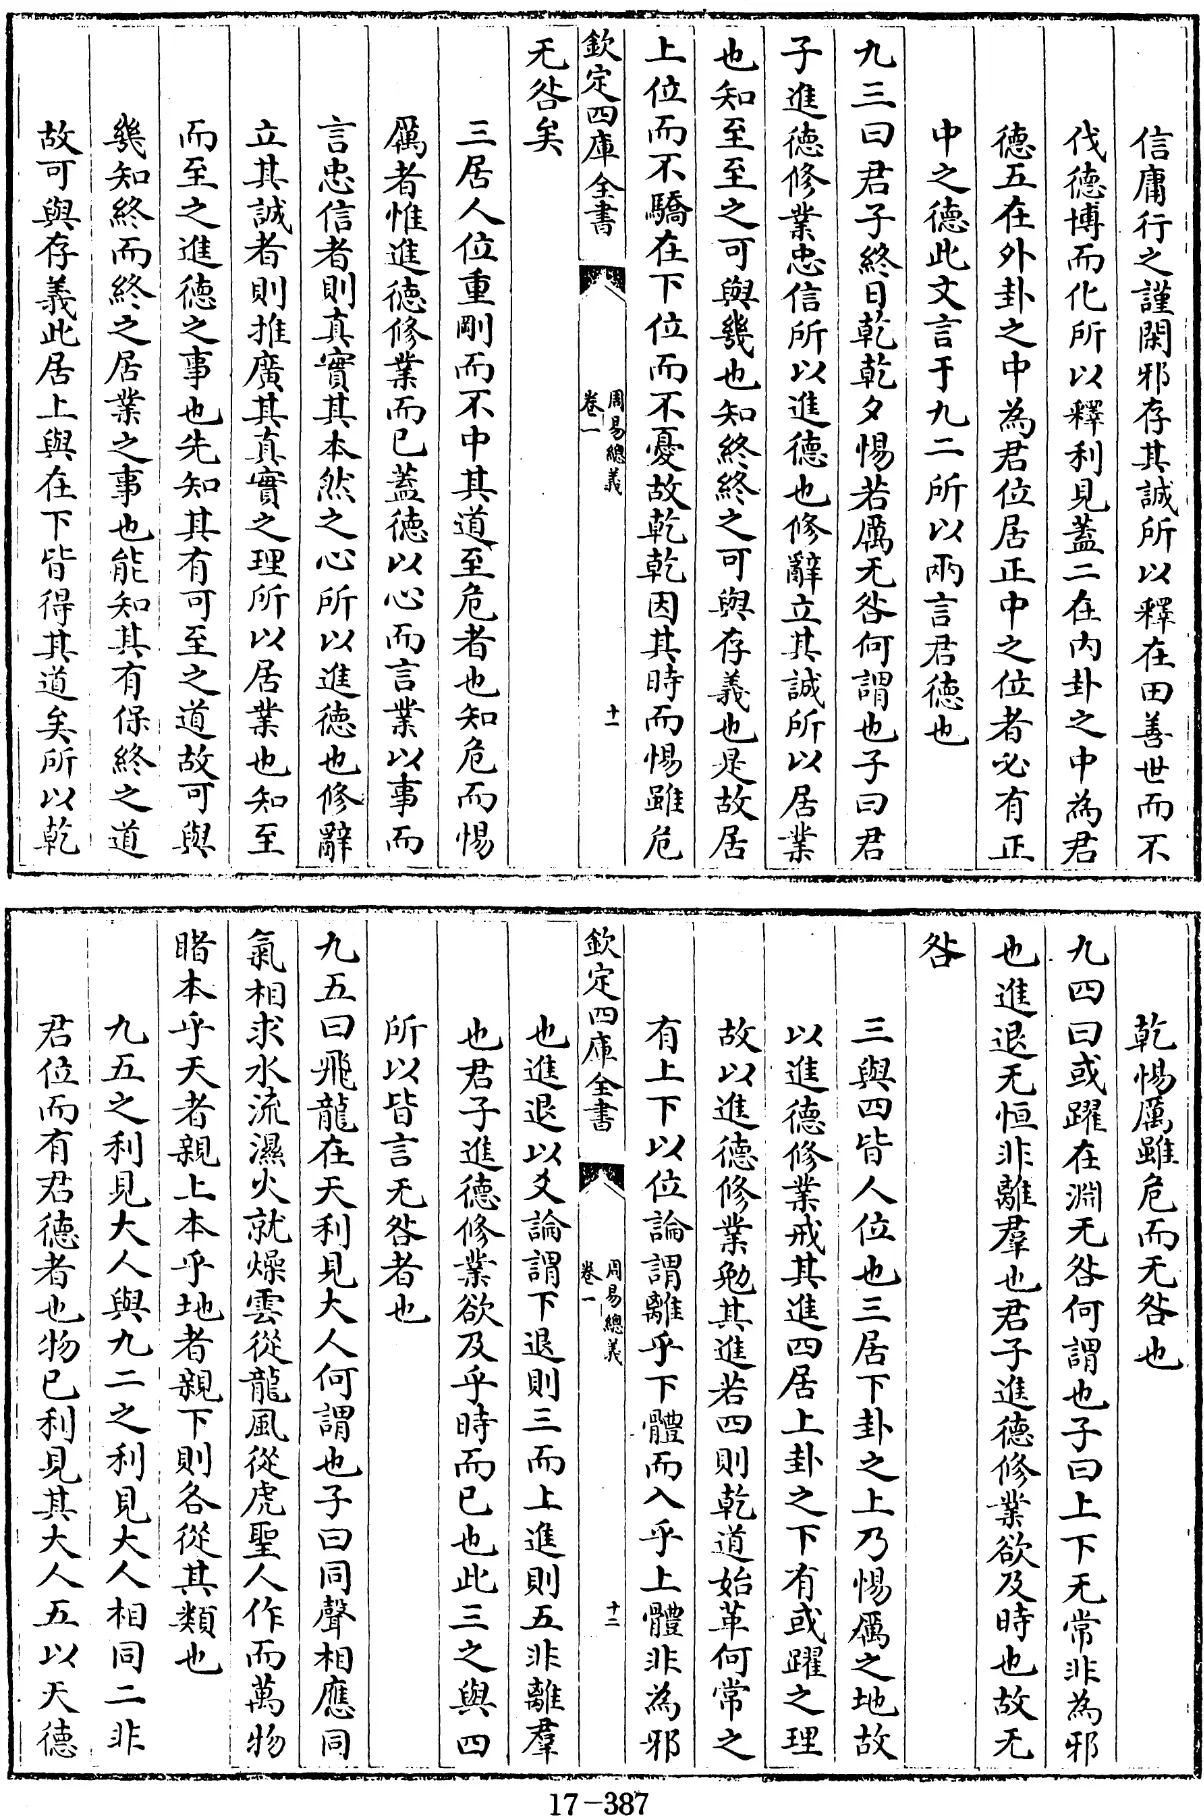 信庸行之謹閑邪存其誠所以釋在田善世而不
伐德博而化所以釋利見蓋二在内卦之中為君
德五在外卦之中為君位居正中之位者必有正
中之德此文言于九二所以兩言君德也
九三曰君子終日乾乾夕惕若厲无咎何謂也子曰君
子進德修業忠信所以進德也修辭立其誠所以居業
也知至至之可與幾也知終終之可與存義也是故居
上位而不驕在下位而不憂故乾乾因其時而惕雖危
欽定四庫全書
周易總義
卷一
十一
无咎矣
三居人位重剛而不中其道至危者也知危而惕
厲者惟進德修業而已蓋德以心而言業以事而
言忠信者則真實其本然之心所以進德也修辭
立其誠者則推廣其真實之理所以居業也知至
而至之進德之事也先知其有可至之道故可與
幾知終而終之居業之事也能知其有保終之道
故可與存義此居上與在下皆得其道矣所以乾
乾惕厲雖危而无咎也
九四曰或躍在淵无咎何謂也子曰上下无常非為邪
也進退无恒非離羣也君子進德修業欲及時也故无
咎
三與四皆人位也三居下卦之上乃惕厲之地故
以進德修業戒其進四居上卦之下有或躍之理
故以進德修業勉其進若四則乾道始革何常之
有上下以位論謂離乎下體而入乎上體非為邪
欽定四庫全書
周易總義
卷一
十二
也進退以爻論謂下退則三而上進則五非離羣
也君子進德修業欲及乎時而已也此三之與四
所以皆言无咎者也
九五曰飛龍在天利見大人何謂也子曰同聲相應同
氣相求水流濕火就燥雲從龍風從虎聖人作而萬物
睹本乎天者親上本乎地者親下則各從其類也
九五之利見大人與九二之利見大人相同二非
君位而有君德者也物已利見其大人五以天德
17-387